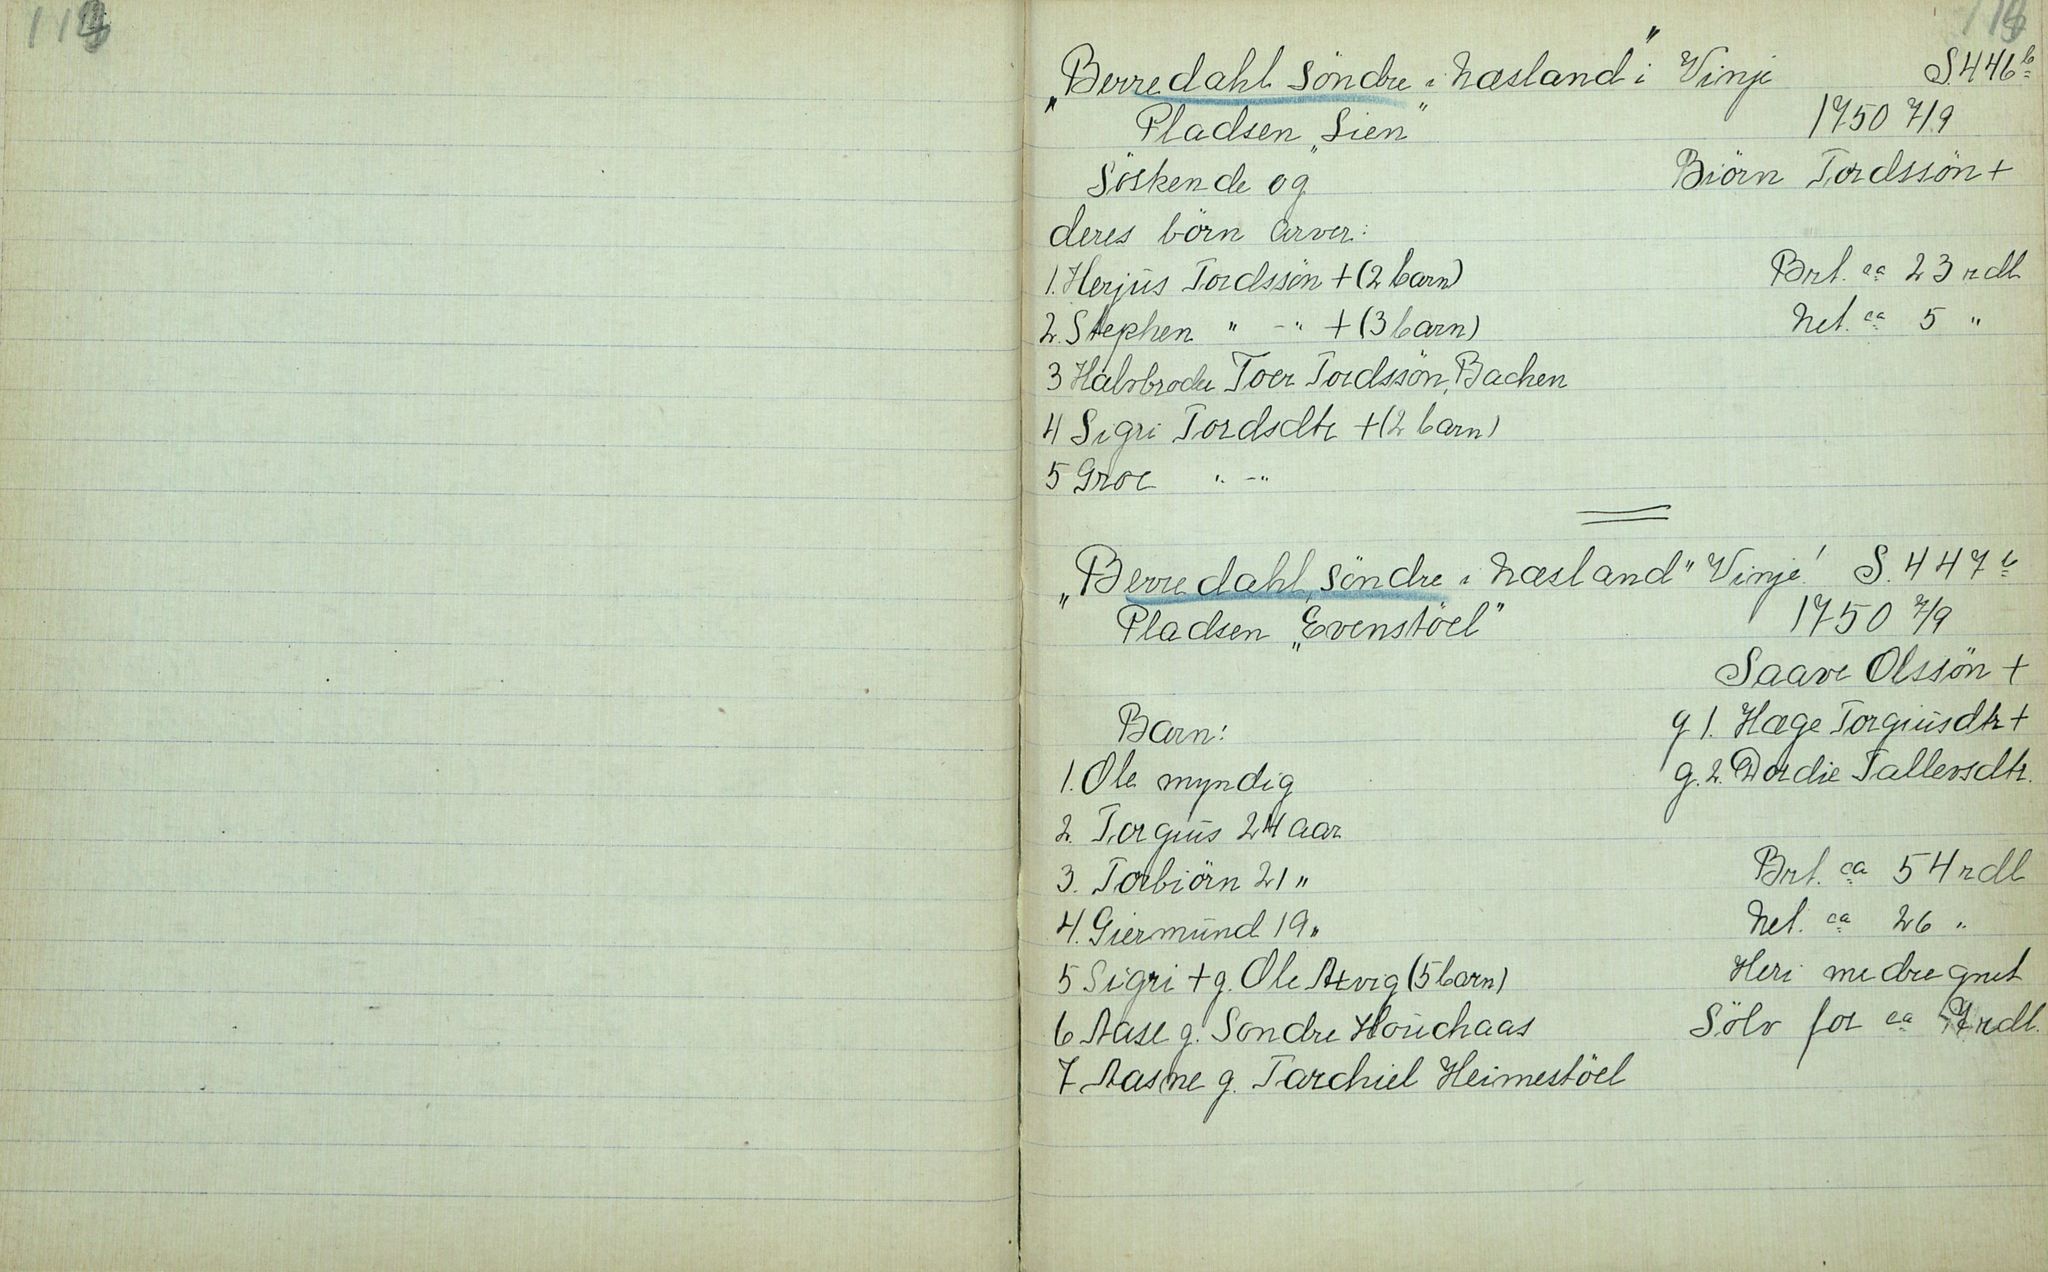 „Berredahl Söndre i Næsland" i Vinje S. 446 b
Pladsen „Lien" 1750 7/9
Söskende og Biörn Tordssön +
deres börn arver:
1. Herjus Tordssön + (2 barn) Brt. ca 23 rdl
2. Stephen " -" + (3 barn) Net. ca 5 "
3 Halvbroder Toer Tordssön, Bachen
4 Sigri Tordsdtr + (2 barn)
5 Groe " -"
„Berredahl, Söndre i Næsland" Vinje! S. 447 b
Pladsen „Evenstöel" 1750 7/9
Saave Olssön +
Barn: g 1. Hæge Torgiusdtr +
1. Ole myndig g. 2. Dordie Tallevsdtr.
2. Torgius 24 aar
3. Torbiörn 21 " Brt. ca 54 rdl
4. Giermund 19 " Net. ca 26 "
5 Sigri + g. Ole Atvig (5 barn) Heri medregnet
6 Aase g. Sondre Houchaas Sölv for ca 7 rdl.
7 Aasne g. Tarchiel Heimestöel